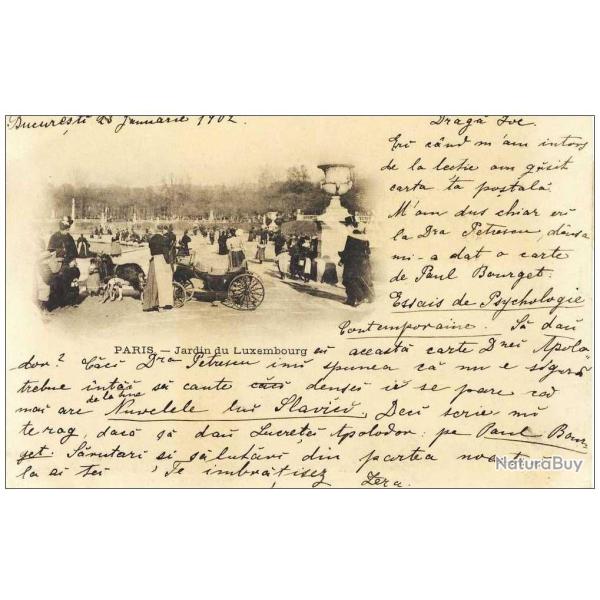 București 28 Januarie 1902.
Dragă
Eri când m'am intors
de la lectie am găsit
carta ta postală.
M'am dus chiar eri
la Dra Petrescu,
mi-a dat o carte
de Paul Bourget.
Essais de Psychologie
Contemporaine. Să dau
PARIS. — Jardin du Luxembourg
această carte Dnei Apolo-
dor? Căci Dra Petrescu îmi spunea că nu e sigură
trebue întâi să caute căci densei i se pare că
de la tine
mai are Nuvelele lui Slavici. Deci scrie-mi
te rog, dacă să dau Lucreției Apolodor pe Paul Bour-
get. Sărutări si salutări din partea noastră
la ai tei Te îmbrățisez
NaturaBuy